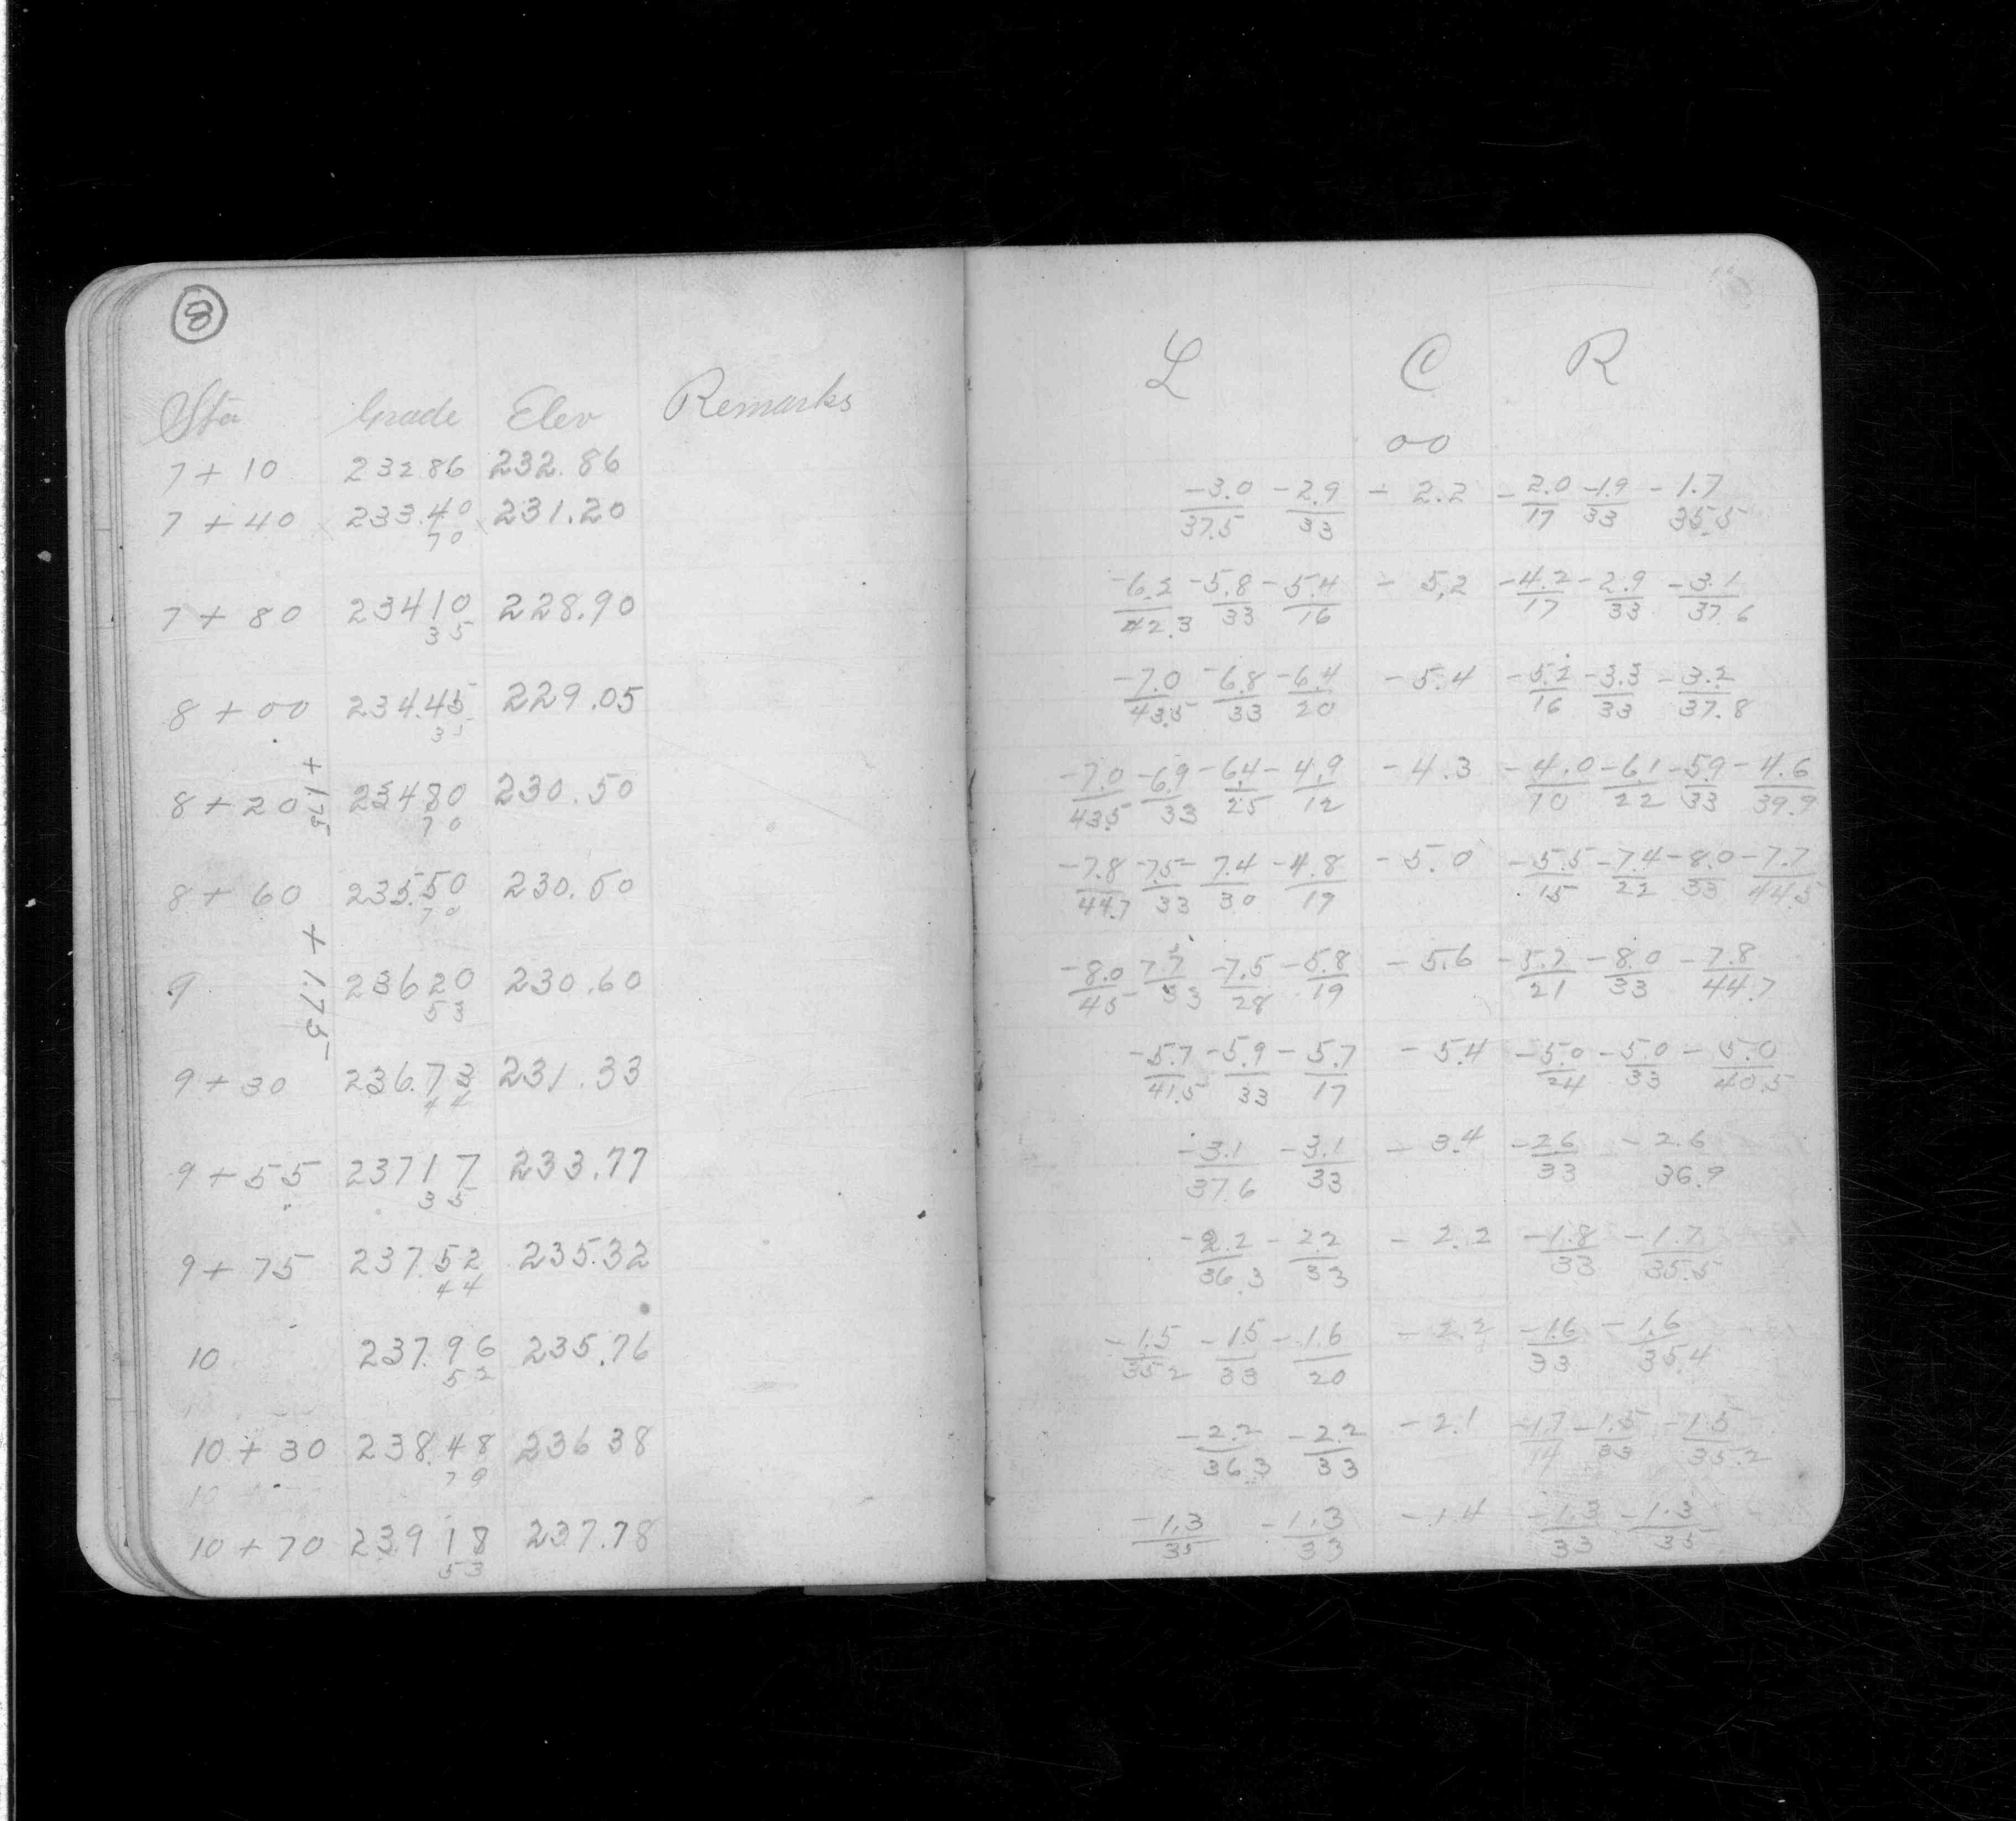 8
Sta Grade Elev Remarks
7 + 10 232.86 232.86
7 + 40 233.40 231.20
70
7 + 80 23410 228.90
35
8 + 00 234.45 229.05
35
+ 1.75
8 + 20 23480 230.50
70
8 + 60 235.50 230.50
70
+ 1.75
9 23620 230.60
53
9 + 30 236.73 231.33
44
9 + 55 23717 233.77
35
9 + 75 237.52 235.32
44
10 237.96 235.76
52
10 + 30 238.48 236 38
70
10 + 70 239 18 237.78
53
L C R
00
-3.0 -2.9 - 2.2 -2.0 -1.9 -1.7
37.5 33 17 33 35.5
-6.2 -5.8 -5.4 - 5.2 -4.2 -2.9 -3.1
42.3 33 16 17 33 37.6
-7.0 -6.8 -6.4 -5.4 -5.2 -3.3 -3.2
43.5 33 20 16 33 37.8
-7.0 -6.9 -6.4 -4.9 -4.3 -4.0 -6.1 -5.9 -4.6
43.5 33 25 12 10 22 33 39.9
-7.8 -7.5 -7.4 -4.8 -5.0 -5.5 -7.4 -8.0 -7.7
44.7 33 30 19 15 22 33 44.5
-8.0 7.7 -7.5 -5.8 -5.6 -5.7 -8.0 -7.8
45 33 28 19 21 33 44.7
-5.7 -5.9 -5.7 -5.4 -5.0 -5.0 -5.0
41.5 33 17 24 33 40.5
-3.1 -3.1 -3.4 -2.6 -2.6
37.6 33 33 36.9
-2.2 -2.2 -2.2 -1.8 -1.7
36.3 33 33 35.5
-1.5 -1.5 -1.6 -2.2 -1.6 -1.6
35.2 33 20 33 35.4
-2.2 -2.2 -2.1 -1.7 -1.5 -1.5
36.3 33 14 33 35.2
-1.3 -1.3 -1.4 -1.3 -1.3
35 33 33 35